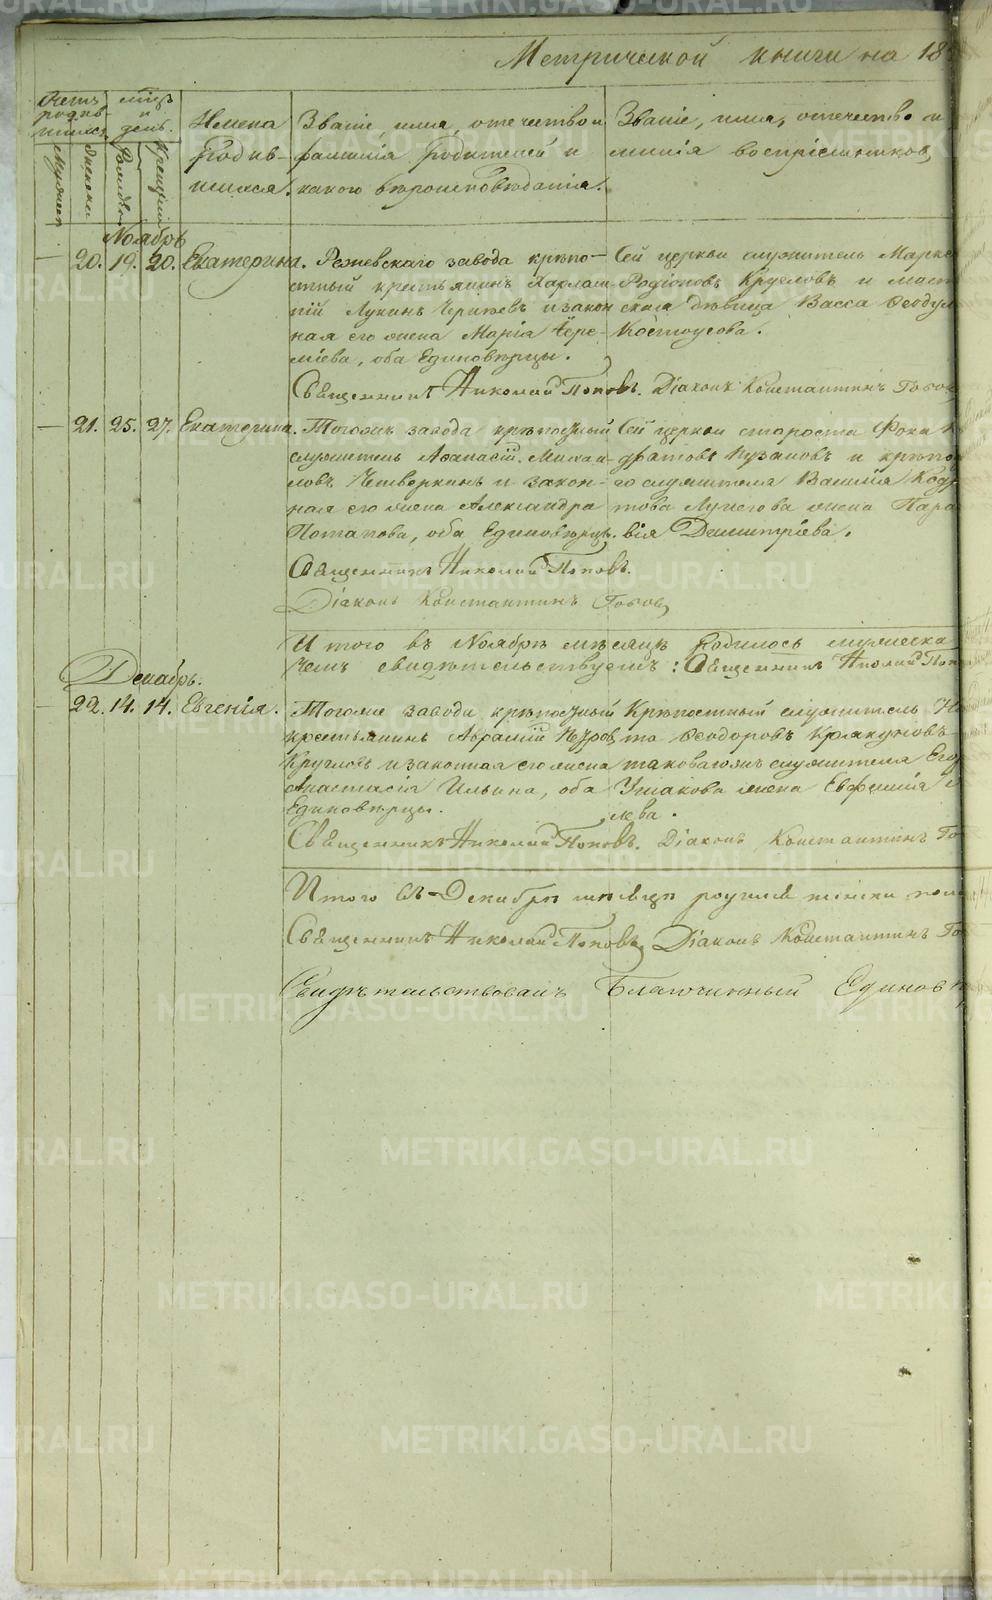 Метрической книги на 18
Счетъ родив-шихся.
мцъ и день.
Имена родив-шихся.
Званіе, имя, отечество и фамилія родителей и какого вѣроисповѣданія.
Званіе, имя, отечество и
милія воспріемниковъ
Мужеск
Женски
Рожден
Крещенія
Ноябрь
20. 19. 20. Екатерина.
Режевскаго завода крѣпо-
стный крестьянинъ Харлам
пій Лукинъ и закон
ная его жена Марія Ере-
міева, оба Единовѣрцы.
Сей церкви служитель Марке
Родіоновъ Круглов и маст
ская дѣвица Васса Ѳеодул
Костоусова.
Священникъ Николай Поповъ. Діаконъ Константинъ Попов
21. 25. 27. Екатерина.
Тогожъ завода крѣпостный
служитель Аѳанасій Михаи-
ловъ Четверкинъ и закон-
ная его жена Александра
Потапова, оба Единовѣрцы.
Сей церкви староста Фока К
дратовъ Пузановъ и крѣпо
го служителя Василія Кодр
това Лунегова жена Пара
вія Димитріева.
Священникъ Николай Поповъ.
Діаконъ Константинъ Попов
Итого въ Ноябрѣ мѣсяцѣ родилось мужеска
чемъ свидѣтельствуемъ: Священникъ Николай Поп
Декабрь.
22. 14. 14. Евгенія.
Тогоже завода крѣпостный
крестьянинъ Аврамій Петров
Кругловъ и законная его жена
Анастасія Ильина, оба
Единовѣрцы.
Крѣпостный служитель
та Ѳеодоровъ Крякуновъ
таковагожъ служителя Его
Ушакова жена Евфимія
лева.
Священникъ Николай Поповъ. Діаконъ Константинъ По
Итого въ Декабрѣ мѣсяцѣ женски пола
Священникъ Николай Поповъ, Діаконъ Константинъ По
Свидѣтельствовалъ Благочинный Единов